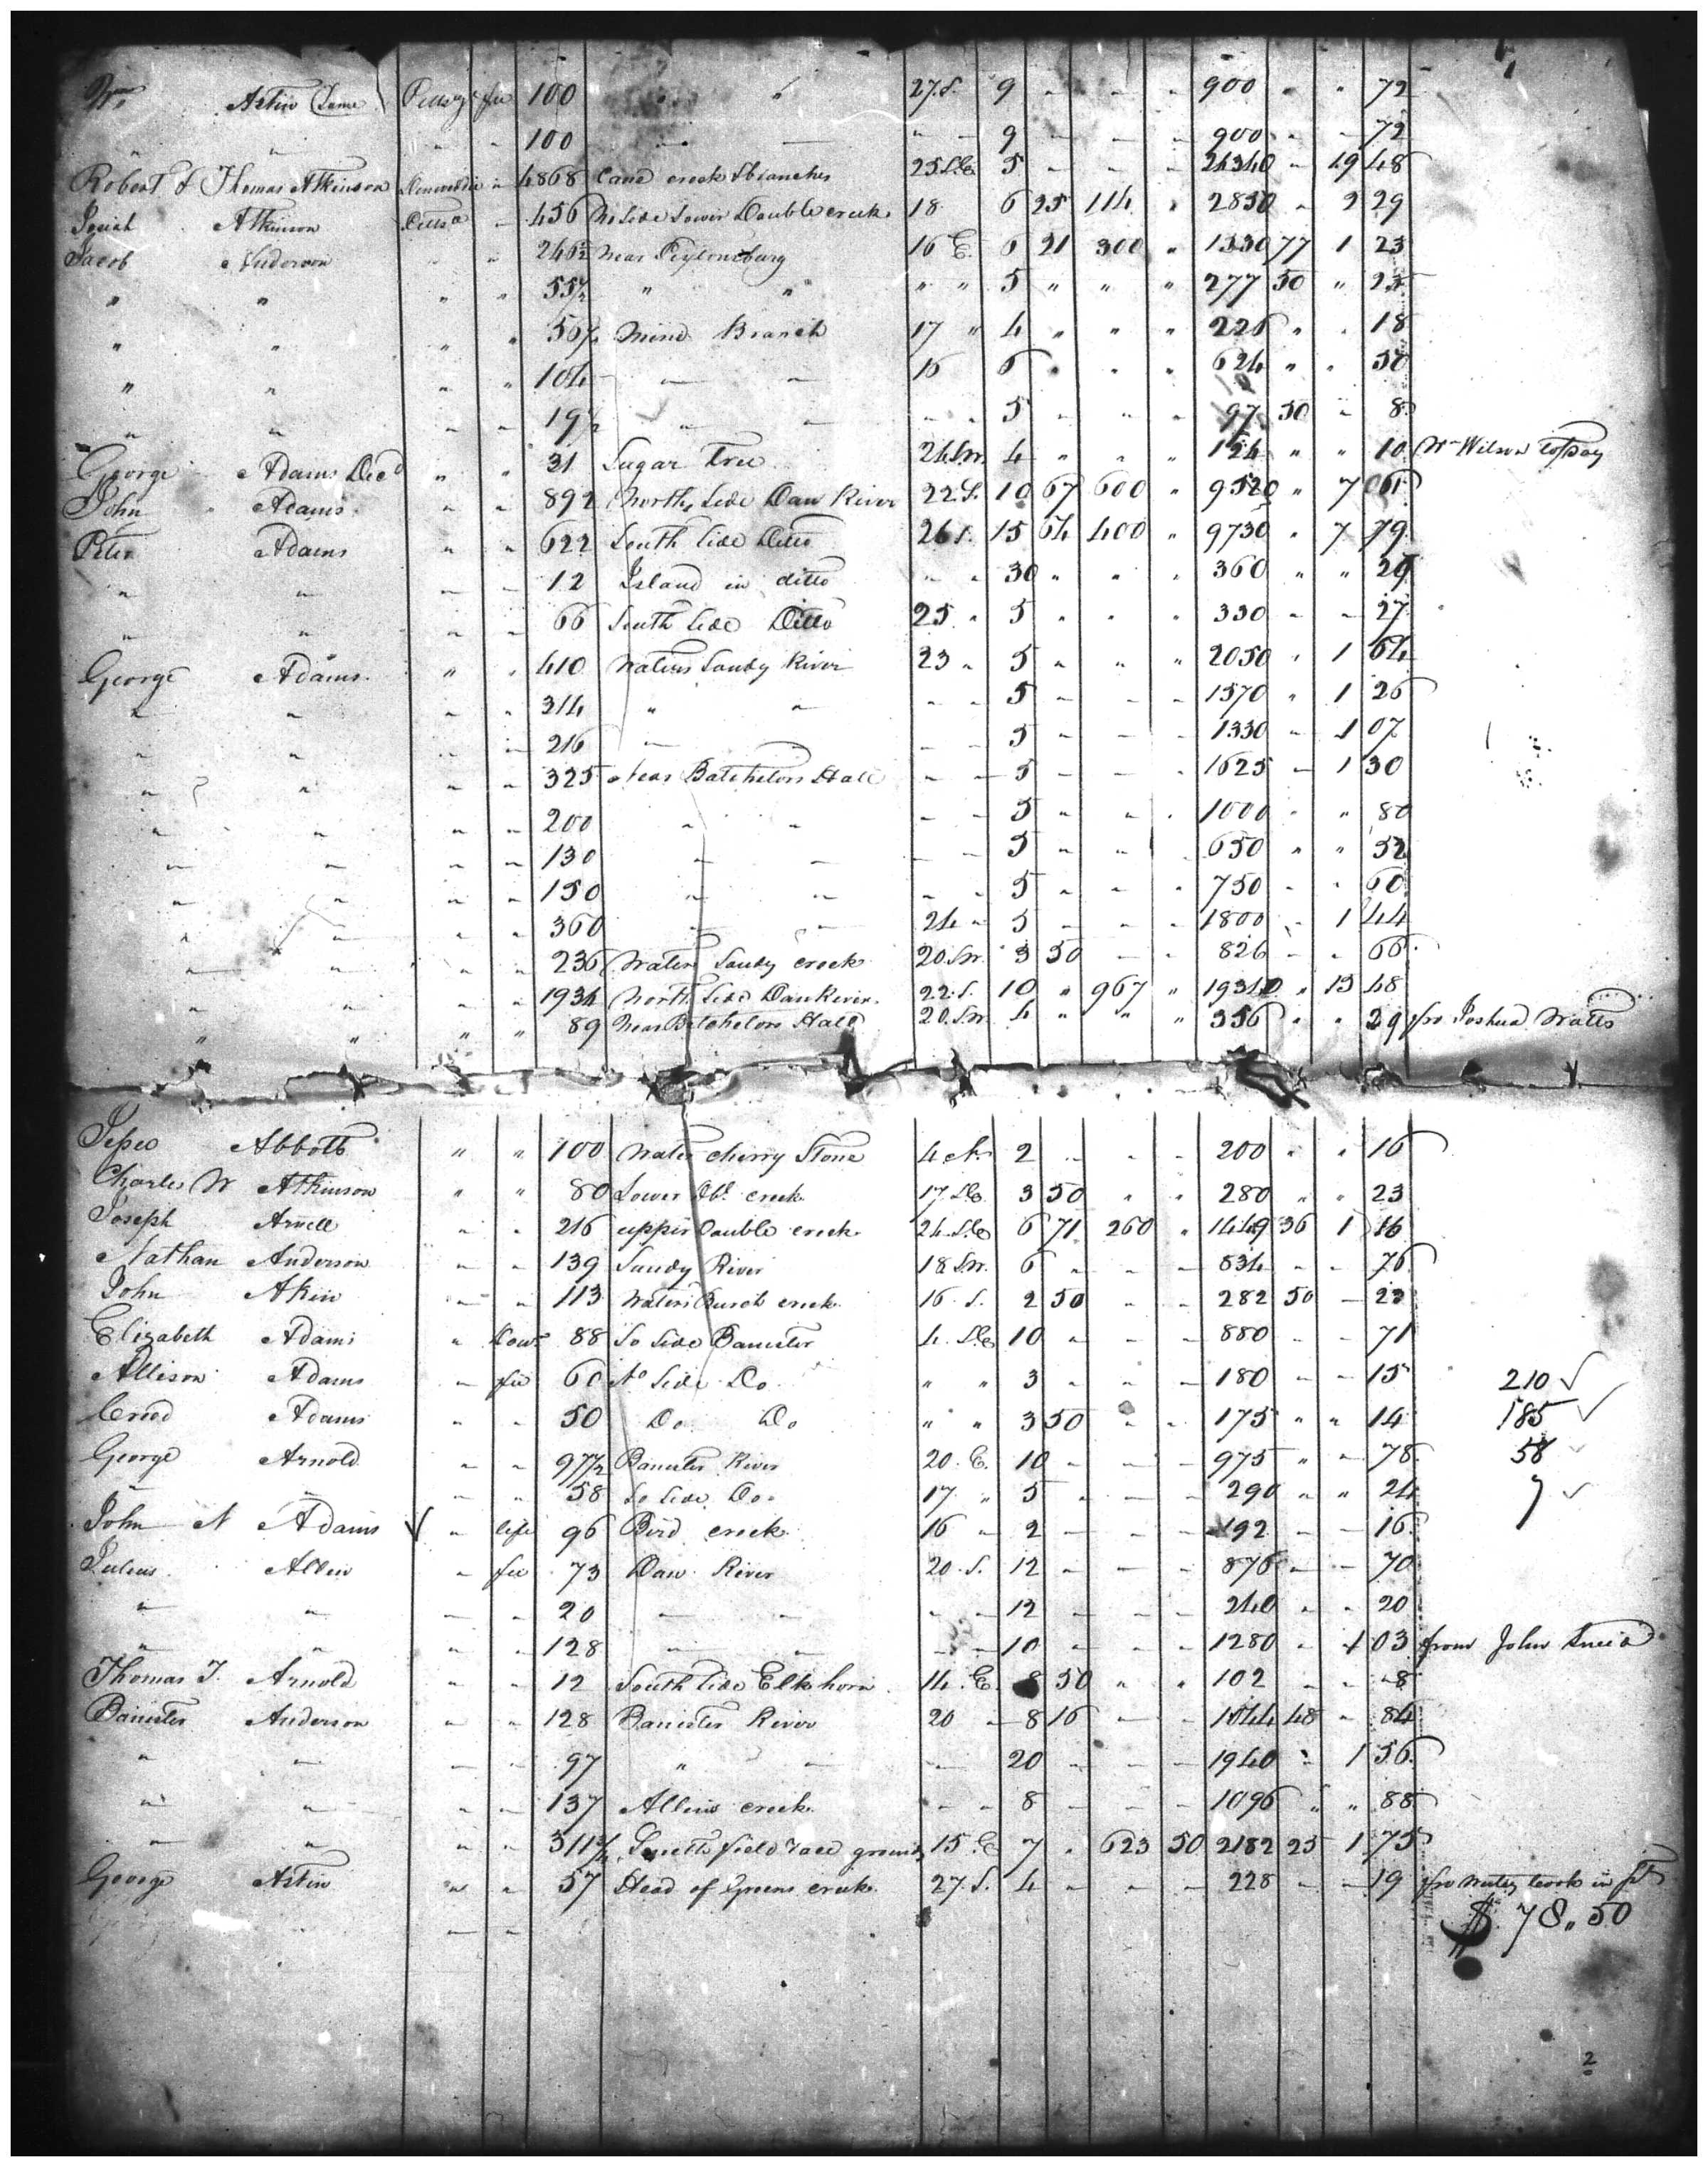 Wm Astin (Lame Pittsya fee 100 " " 27.S. 9 - - - 900 " " 72
" " " " 100 - - " - 9 - - - 900 " - 72
Robert & Thomas Atkinson Dinwiddie " 4868 Cane creek & branches 25 S.E 5 - - - 24340 - 19 48
Josiah Atkinson Pittsa - 456 No Side Lower Double creek 18 6 25 114 " 2850 - 2 29
Jacob Anderson " " 246½ Near Peytonsburg 16 E. 6 21 300 " 1530 77 1 23
" " " " 55½ " " " " 5 " " " 277 50 " 23
" " " " 56½ Mine Branch 17 " 4 " " " 226 " " 18
" " " " 104 - - 16 6 " " " 624 " " 50
" " " " 19½ " - - - 5 - " - 97 50 - 8
George Adams Decd " " 31 Sugar Tree 24 S.W. 4 " " " 124 " " 10 Wm Wilson to pay
John Adams " " 892 North Side Dan River 22.S. 10 67 600 " 9520 " 7 61
Peter Adams " " 622 South Side Ditto 26 S. 15 64 400 " 9730 " 7 79
" " - - 12 Island in ditto " " 30 " " " 360 " " 29
" " " - 66 South Side Ditto 25 " 5 " " " 330 - - 27
George Adams " " 410 Waters Sandy River 23 " 5 " " " 2050 " 1 64
" " " " 314 " " - - 5 - - - 1570 " 1 26
" " " " 216 - - - - 5 - - - 1330 - 1 07
" " " " 325 Near Batchelors Hall - - 5 - - - 1625 - 1 30
" " " " 200 " " - - 5 " " " 1000 " " 80
" " " " 130 - - - - 5 - " - 650 " " 52
" " " " 150 " " " " 5 - - " 750 - " 60
" " " " 360 - - 24 " 5 - - - 1800 - 1 44
" " " " 236 Waters Sandy creek 20.S.W. 3 50 - - 826 - " 66
" " " " 1934 North Side Dan River. 22.S. 10 " 967 " 19340 " 15 48
" " " " 89 Near Batchelors Hall 20.S.W. 4 " " " 356 " " 29 fro Joshua Watts
Jesse Abbott " " 100 Waters cherry Stone 4 N. 2 - - - 200 " " 16
Charles W Atkinson " " 80 Lower Dbl. creek 17 S.E. 3 50 " " 280 " " 23
Joseph Arnell " " 216 upper Double creek 24.S.E 6 71 260 " 1449 36 1 16
Nathan Anderson " " 139 Sandy River 18 S.W. 6 " - - 834 - - 76
John Akin - " 113 Waters Burch creek 16. S. 2 50 - - 282 50 - 23
Elizabeth Adams " Dowr 88 So Side Banister 4. S.E 10 - - - 880 - - 71
Allison Adams - fee 60 No Side Do. " " 3 - - - 180 - - 15 210 ✓
Creed Adams - - 50 Do Do " " 3 50 - - 175 " " 14 185 ✓
George Arnold - - 97½ Banister River 20. E. 10 - - - 975 " - 78 58 ✓
- - - " 58 So Side Do. 17 " 5 - - - 290 " " 24 7 ✓
John N Adams ✓ " life 96 Bird creek 16 - 2 - - - 192 - - 16
Julius Allen - fee 73 Dan River 20. S. 12 - - - 876 - - 70
" " - - 20 - - " - 12 - - - 240 " " 20
" " " " 128 " " - - 10 - - - 1280 - 1 03 from John
Thomas T. Arnold - - 12 South Side Elkhorn 14. E. 8 50 " " 102 - - 8
Banister Anderson - - 128 Banister River 20 - 8 16 - - 1044 48 - 84
" - - - 97 " - - 20 - - - 1940 - 1 56
" " - - 137 Allins creek - - 8 - - - 1096 " " 88
- " " " field race grounds 15. E 7 " 623 50 2182 25 1 75
George Astin " " 57 Head of Greens creek 27.S. 4 - - - 228 - - 19
- -
$ 78.50
2